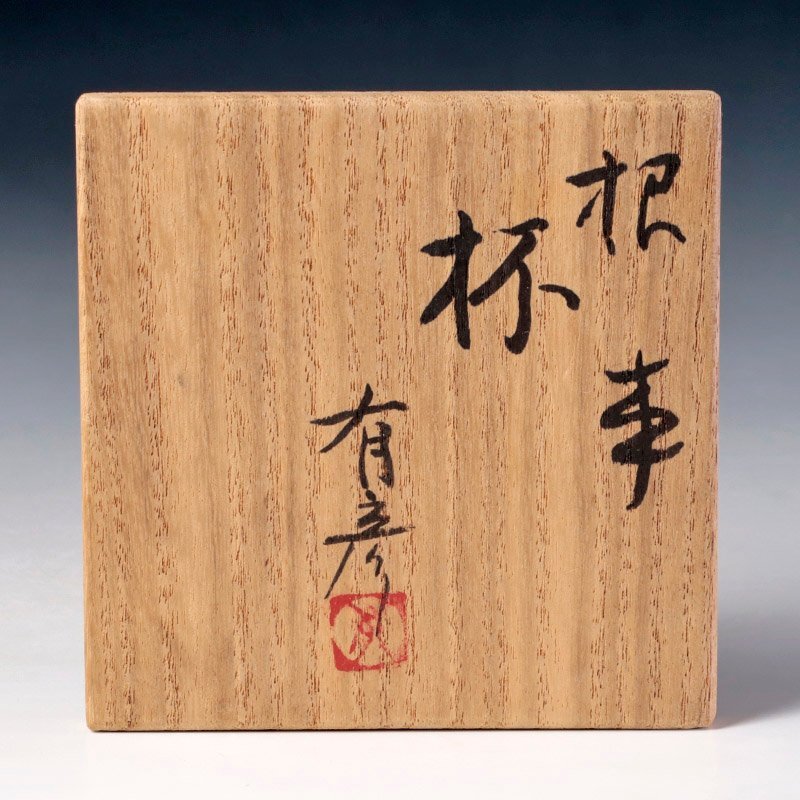 根来
杯
有彦